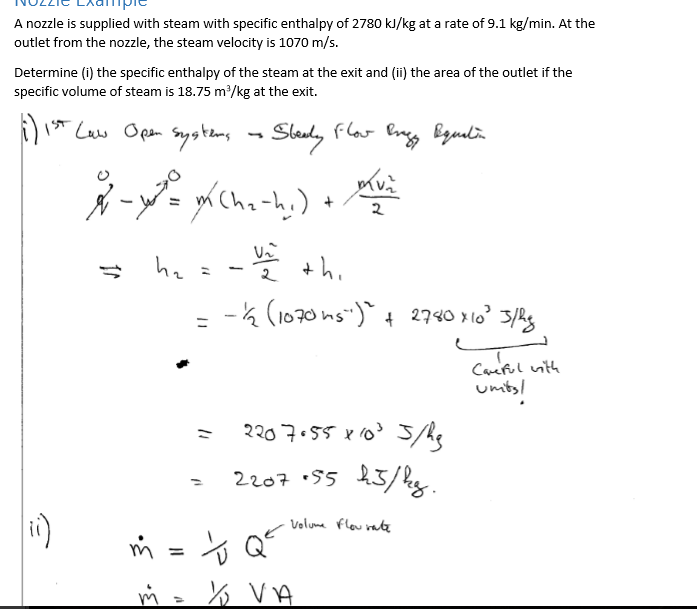 Nozzle Example
A nozzle is supplied with steam with specific enthalpy of 2780 kJ/kg at a rate of 9.1 kg/min. At the
outlet from the nozzle, the steam velocity is 1070 m/s.
Determine (i) the specific enthalpy of the steam at the exit and (ii) the area of the outlet if the
specific volume of steam is 18.75 m³/kg at the exit.
i) 1st Law Open systems → Steady Flow Energy Equation
q̇ - ẇ = ṁ(h₂-h₁) + ṁv₂²/2
0 0
⇒ h₂ = - v₂²/2 + h₁
= -½ (1070 ms⁻¹)² + 2780 x10³ J/kg
Careful with
units!
= 2207.55 x 10³ J/kg
= 2207.55 kJ/kg.
ii) ṁ = 1/υ Q ← Volume flow rate
ṁ = 1/υ VA